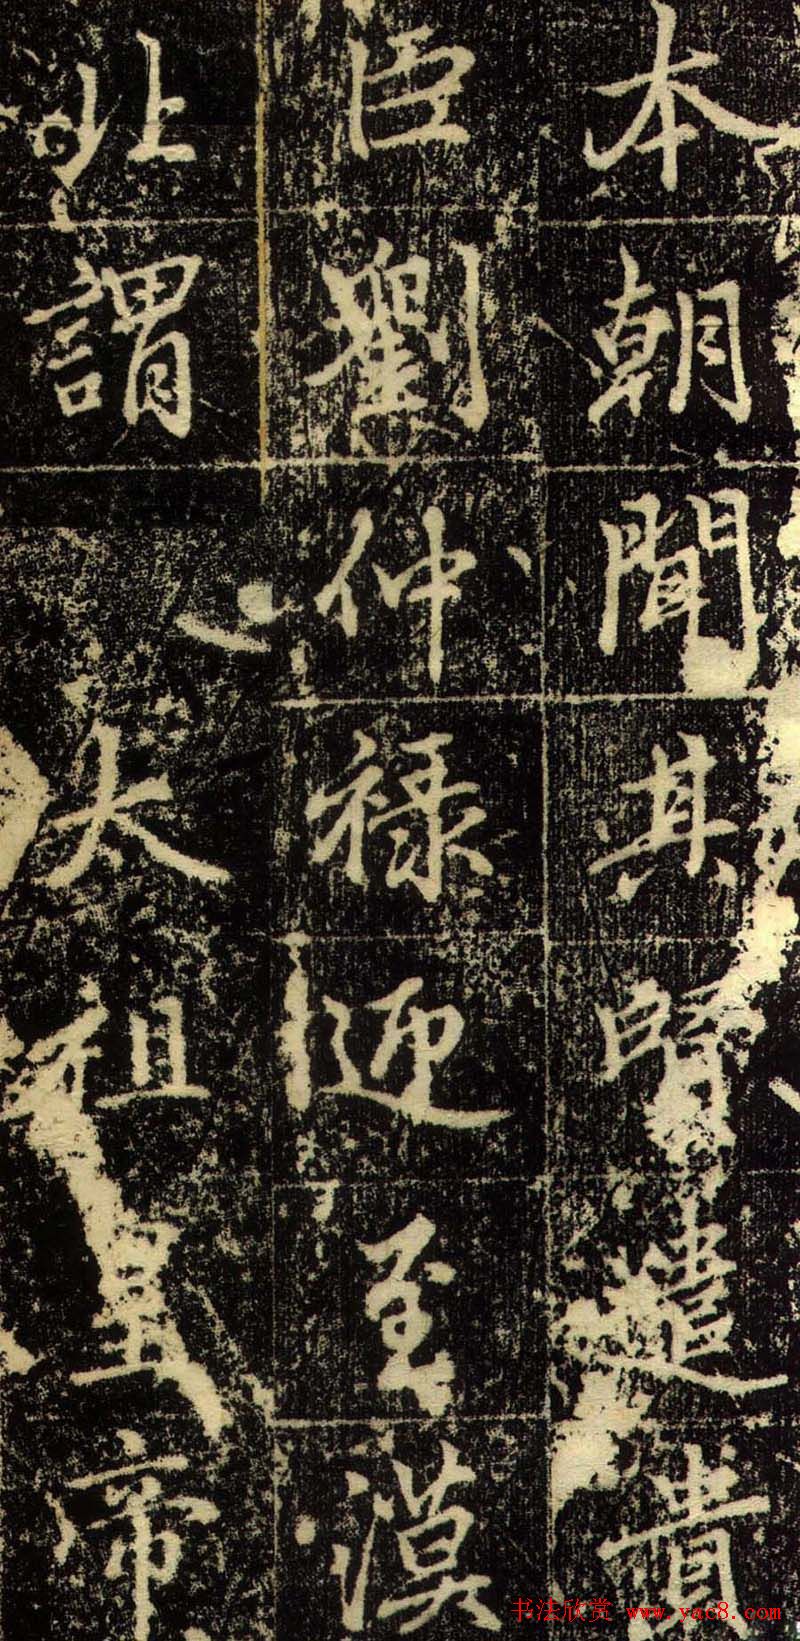 本朝聞其賢遣貴
臣劉仲禄迎至漠
北謂太祖皇帝
书法欣赏 www.yac8.com